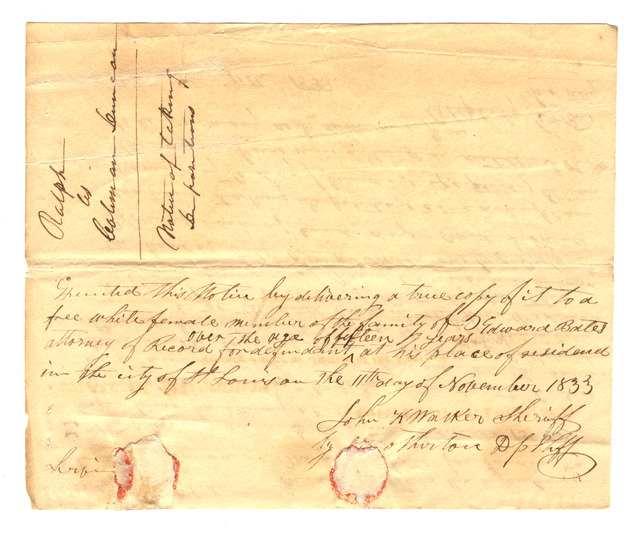 Ralph
vs
Coleman Duncan
Notice of taking
Depositions &
Executed this Notice by delivering a true copy of it to a
free white female member of the family of Edward Bates
over the age of fifteen years
attorney of Record for defendant ^ at his place of residence
in the city of St Louis on the 11th day of November 1833
John K Walker Sheriff
by Dp Shff